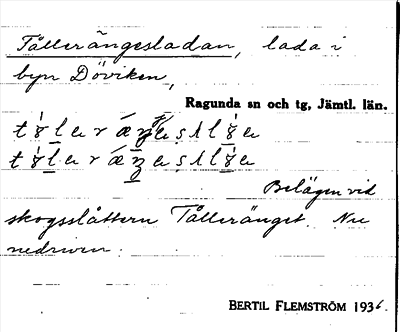 Tållerängesladan, lada i
byn Döviken,
Ragunda sn och tg, Jämtl. län.
Belägen vid
skogsslåttern Tålleränget. Nu
nedriven.
BERTIL FLEMSTRÖM 1936.